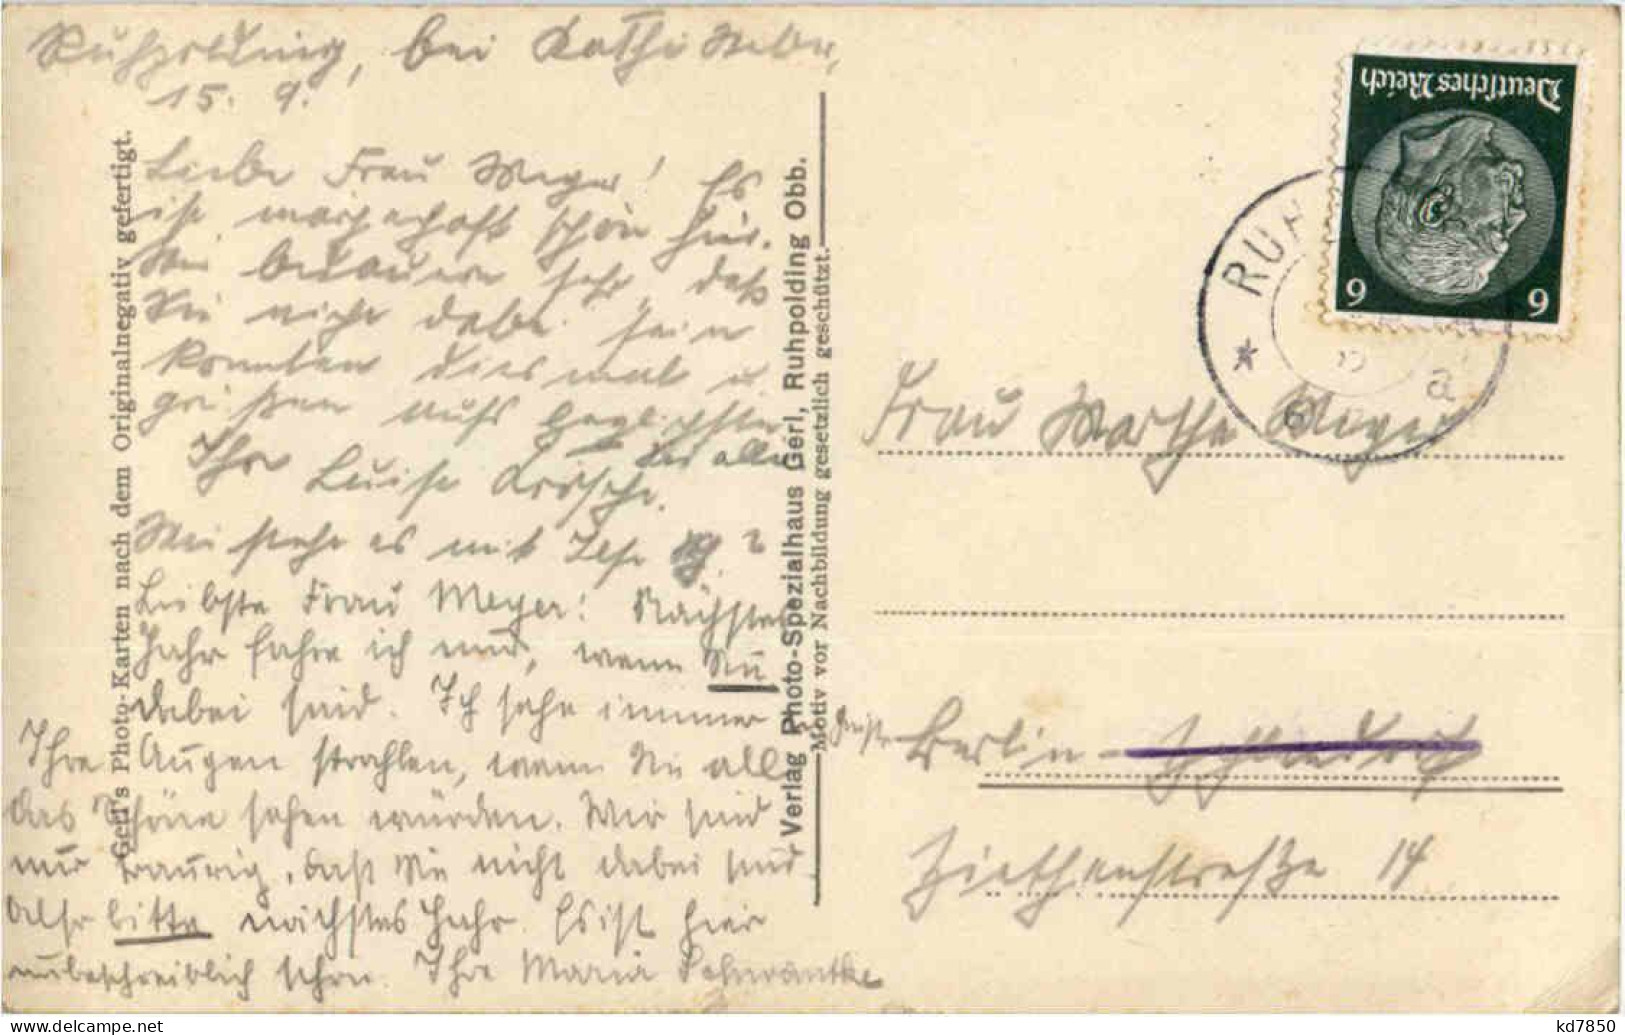 Ruhpolding, bei Käthi Weber,
15. 9.
Liebe Frau Meyer! Es
ist märchenhaft schön hier.
Wir bedauern sehr, daß
Sie nicht dabei sein
konnten diesmal u.
grüßen aufs herzlichste
Sie alle
Ihre Luise
Wie steht es mit Ilse
Liebste Frau Meyer! Nächstes
Jahr fahre ich nur, wenn Sie
dabei sind. Ich sehe immer im Geiste
Ihre Augen strahlen, wenn Sie all
das Schöne sehen würden. Wir sind
nur traurig, daß Sie nicht dabei sind.
Also bitte nächstes Jahr. Es ist hier
unbeschreiblich schön. Ihre Maria
Gerl's Photo-Karten nach dem Originalnegativ gefertigt.
Verlag Photo-Spezialhaus Gerl, Ruhpolding Obb.
Motiv vor Nachbildung gesetzlich geschützt.
Deutsches Reich
6 6
RUH
a
Frau Marthe Meyer
Berlin - Zehlendorf
Ziethenstraße 14
kd7850